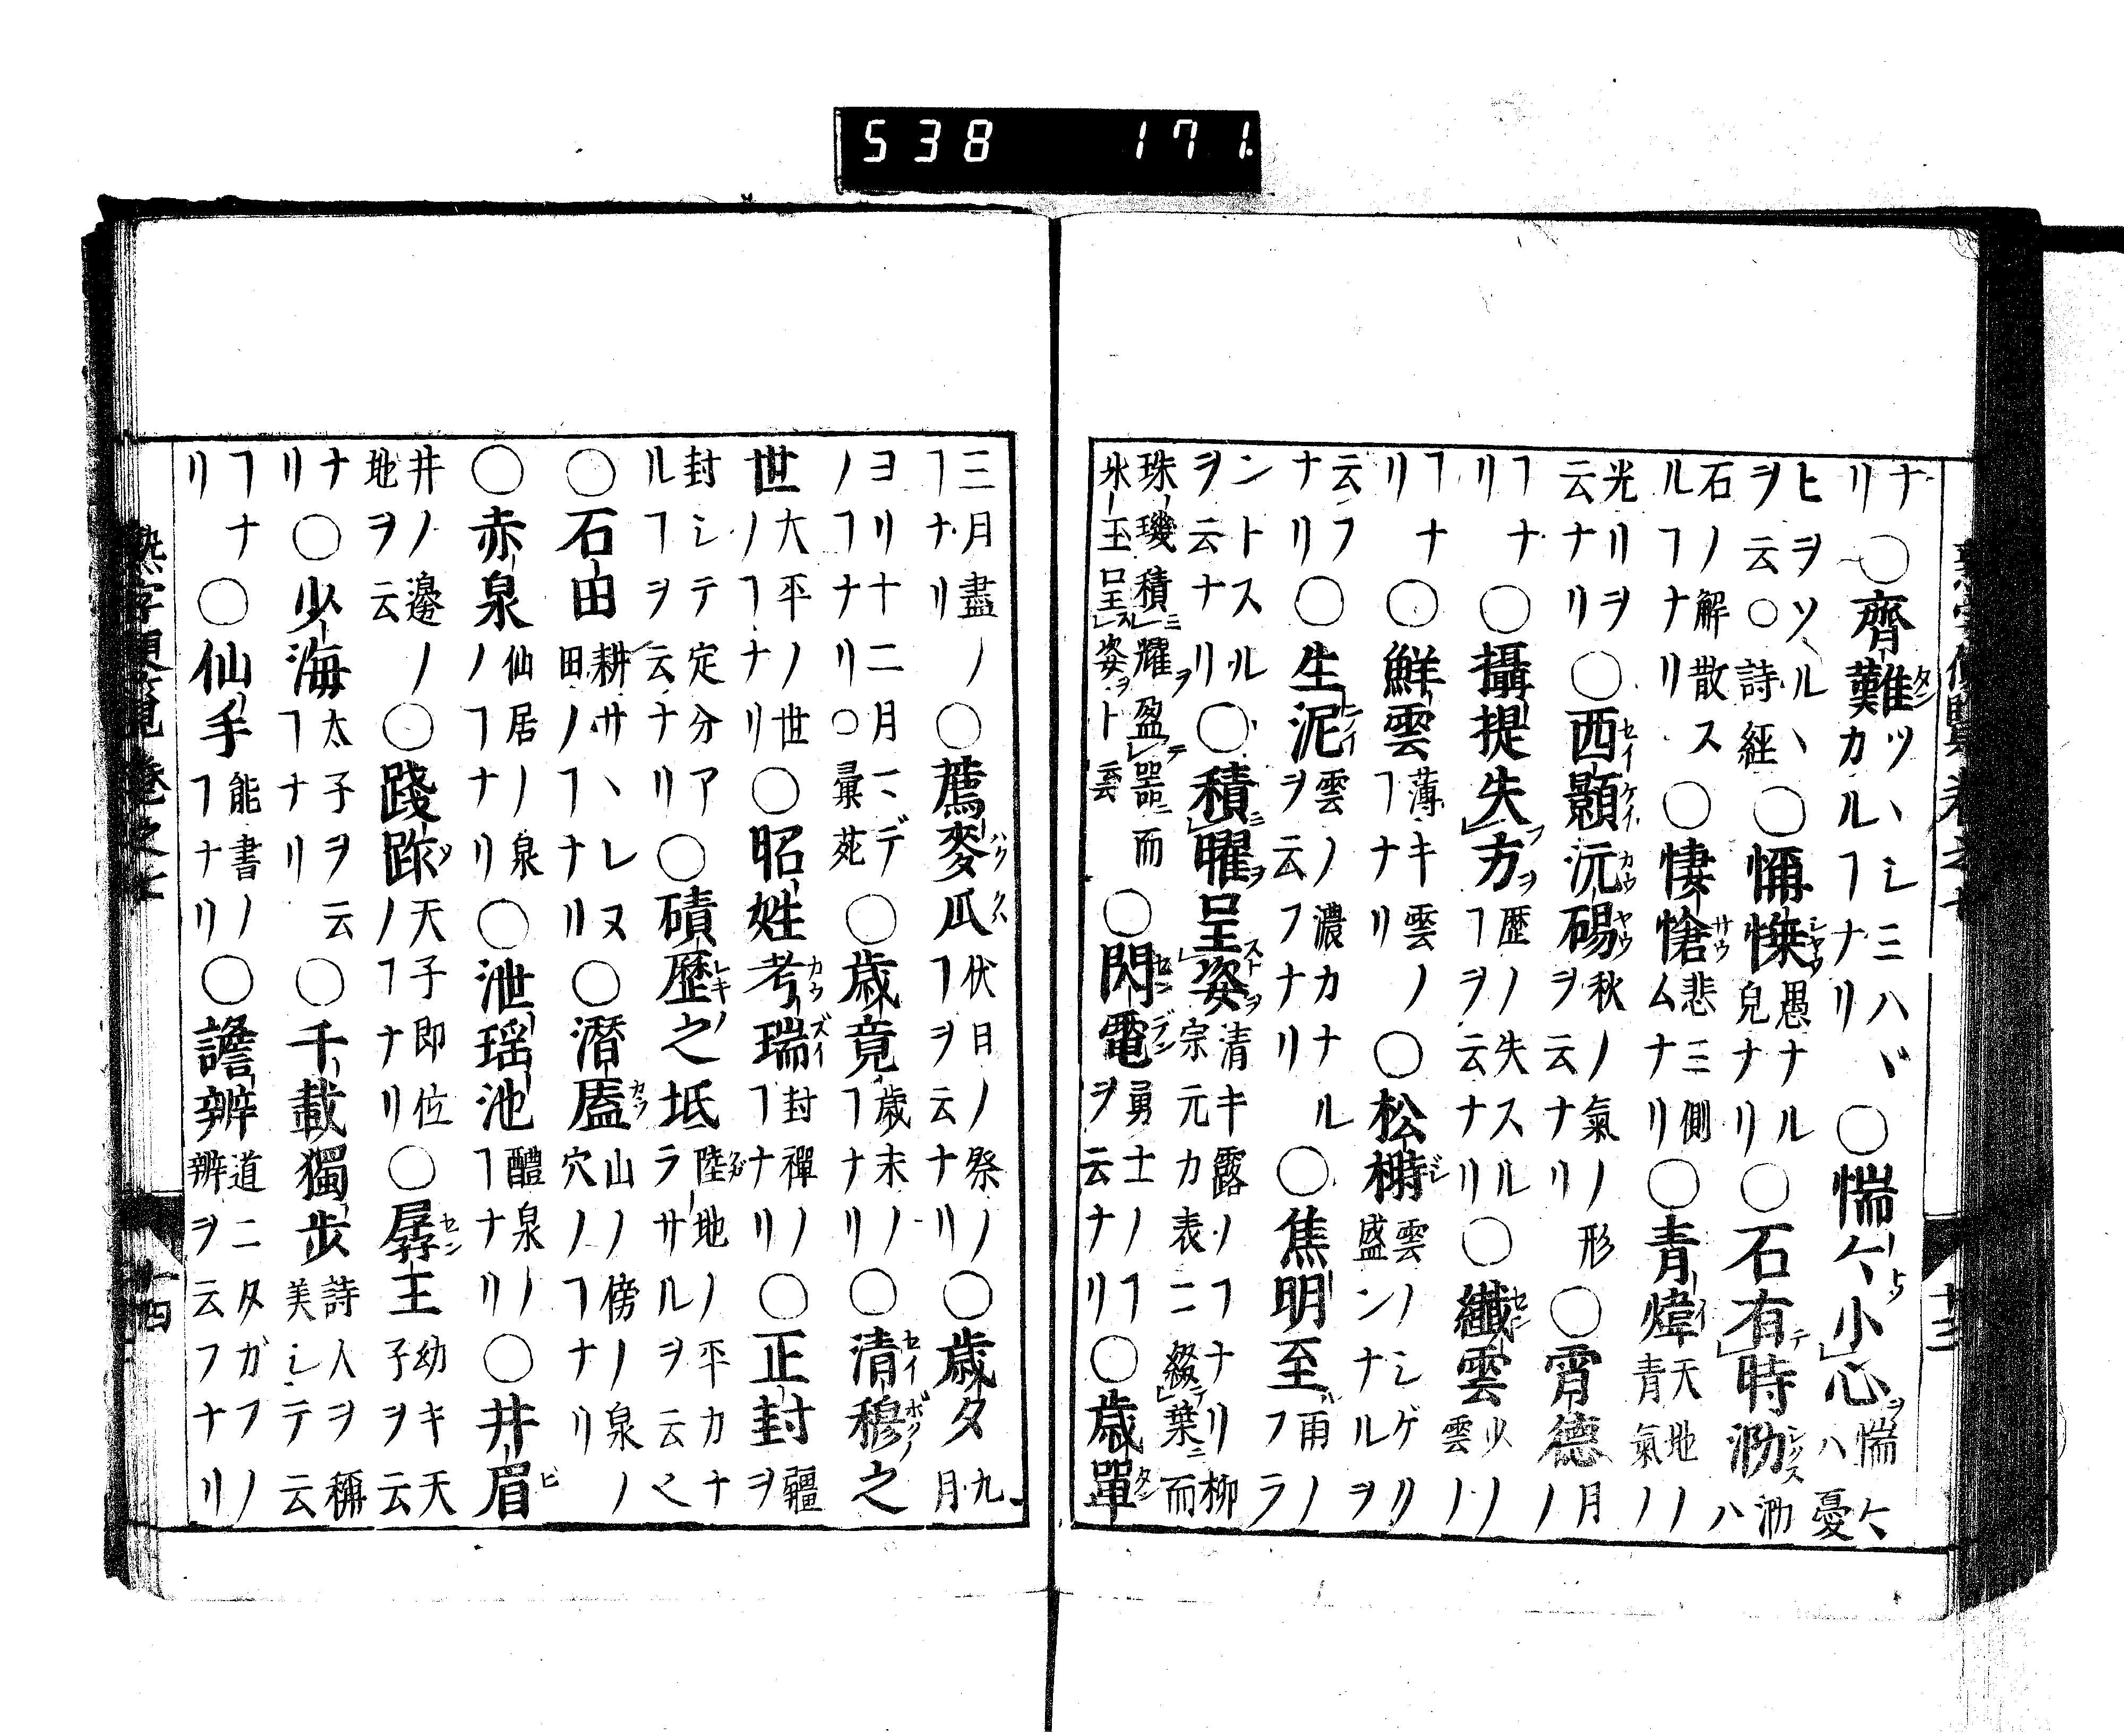 538 171
ナリ○齊難ツヽシミハヾカルヿナリ○惴〻小心惴〻ハ憂
ヒヲソルヽヲ云○詩経○愚ナル皃ナリ○石有時泐泐ハ
石ノ解散スルヿナリ○悽愴悲ミ側ムナリ○青煒天地ノ青氣ノ
光リヲ云ナリ○西顥沆碭秋ノ氣ノ形ヲ云ナリ○霄德月ノ
ヿナリ○攝提失方歴ノ失スルヿヲ云ナリ○纖雲少雲ノ
ヿナリ○鮮雲薄キ雲ノヿナリ○松榯雲ノシゲリ盛ンナルヲ
云フナリ○生泥雲ノ濃カナルヲ云フナリ○焦明至雨ノフラ
ントスルヲ云ナリ○積曜呈姿清キ露ノヿナリ柳宗元カ表ニ綴葉而
珠璣積耀盈器而氷玉呈姿ト○閃電勇士ノヿヲ云ナリ○歳單
三月盡ノヿナリ○薦麥瓜伏日ノ祭リノヿヲ云ナリ○歳夕九月
ヨリ十二月マデノヿナリ○彙苑○歳竟歳末ノヿナリ○清穆之
世大平ノ世ノヿナリ○昭姓考瑞封禪ノヿナリ○正封疆ヲ
封シテ定分アルヿヲ云ナリ○磧歷之坻陸地ノ平カナラサルヲ云
○石田耕サヽレヌ田ノヿナリ○潛𢈈山ノ傍ノ泉ノ穴ノヿナリ
○赤泉仙居ノ泉ノヿナリ○泄瑶池醴泉ノヿナリ○井眉
井ノ邊ノ地ヲ云○踐阼天子即位ノヿナリ○孱王幼キ天子ヲ云
ナリ○少海太子ヲ云ヿナリ○千載獨歩詩人ヲ稱美シテ云
ヿナリ○仙手能書ノヿナリ○譫辨道ニタガフノ辨ヲ云フナリ
十三
十四